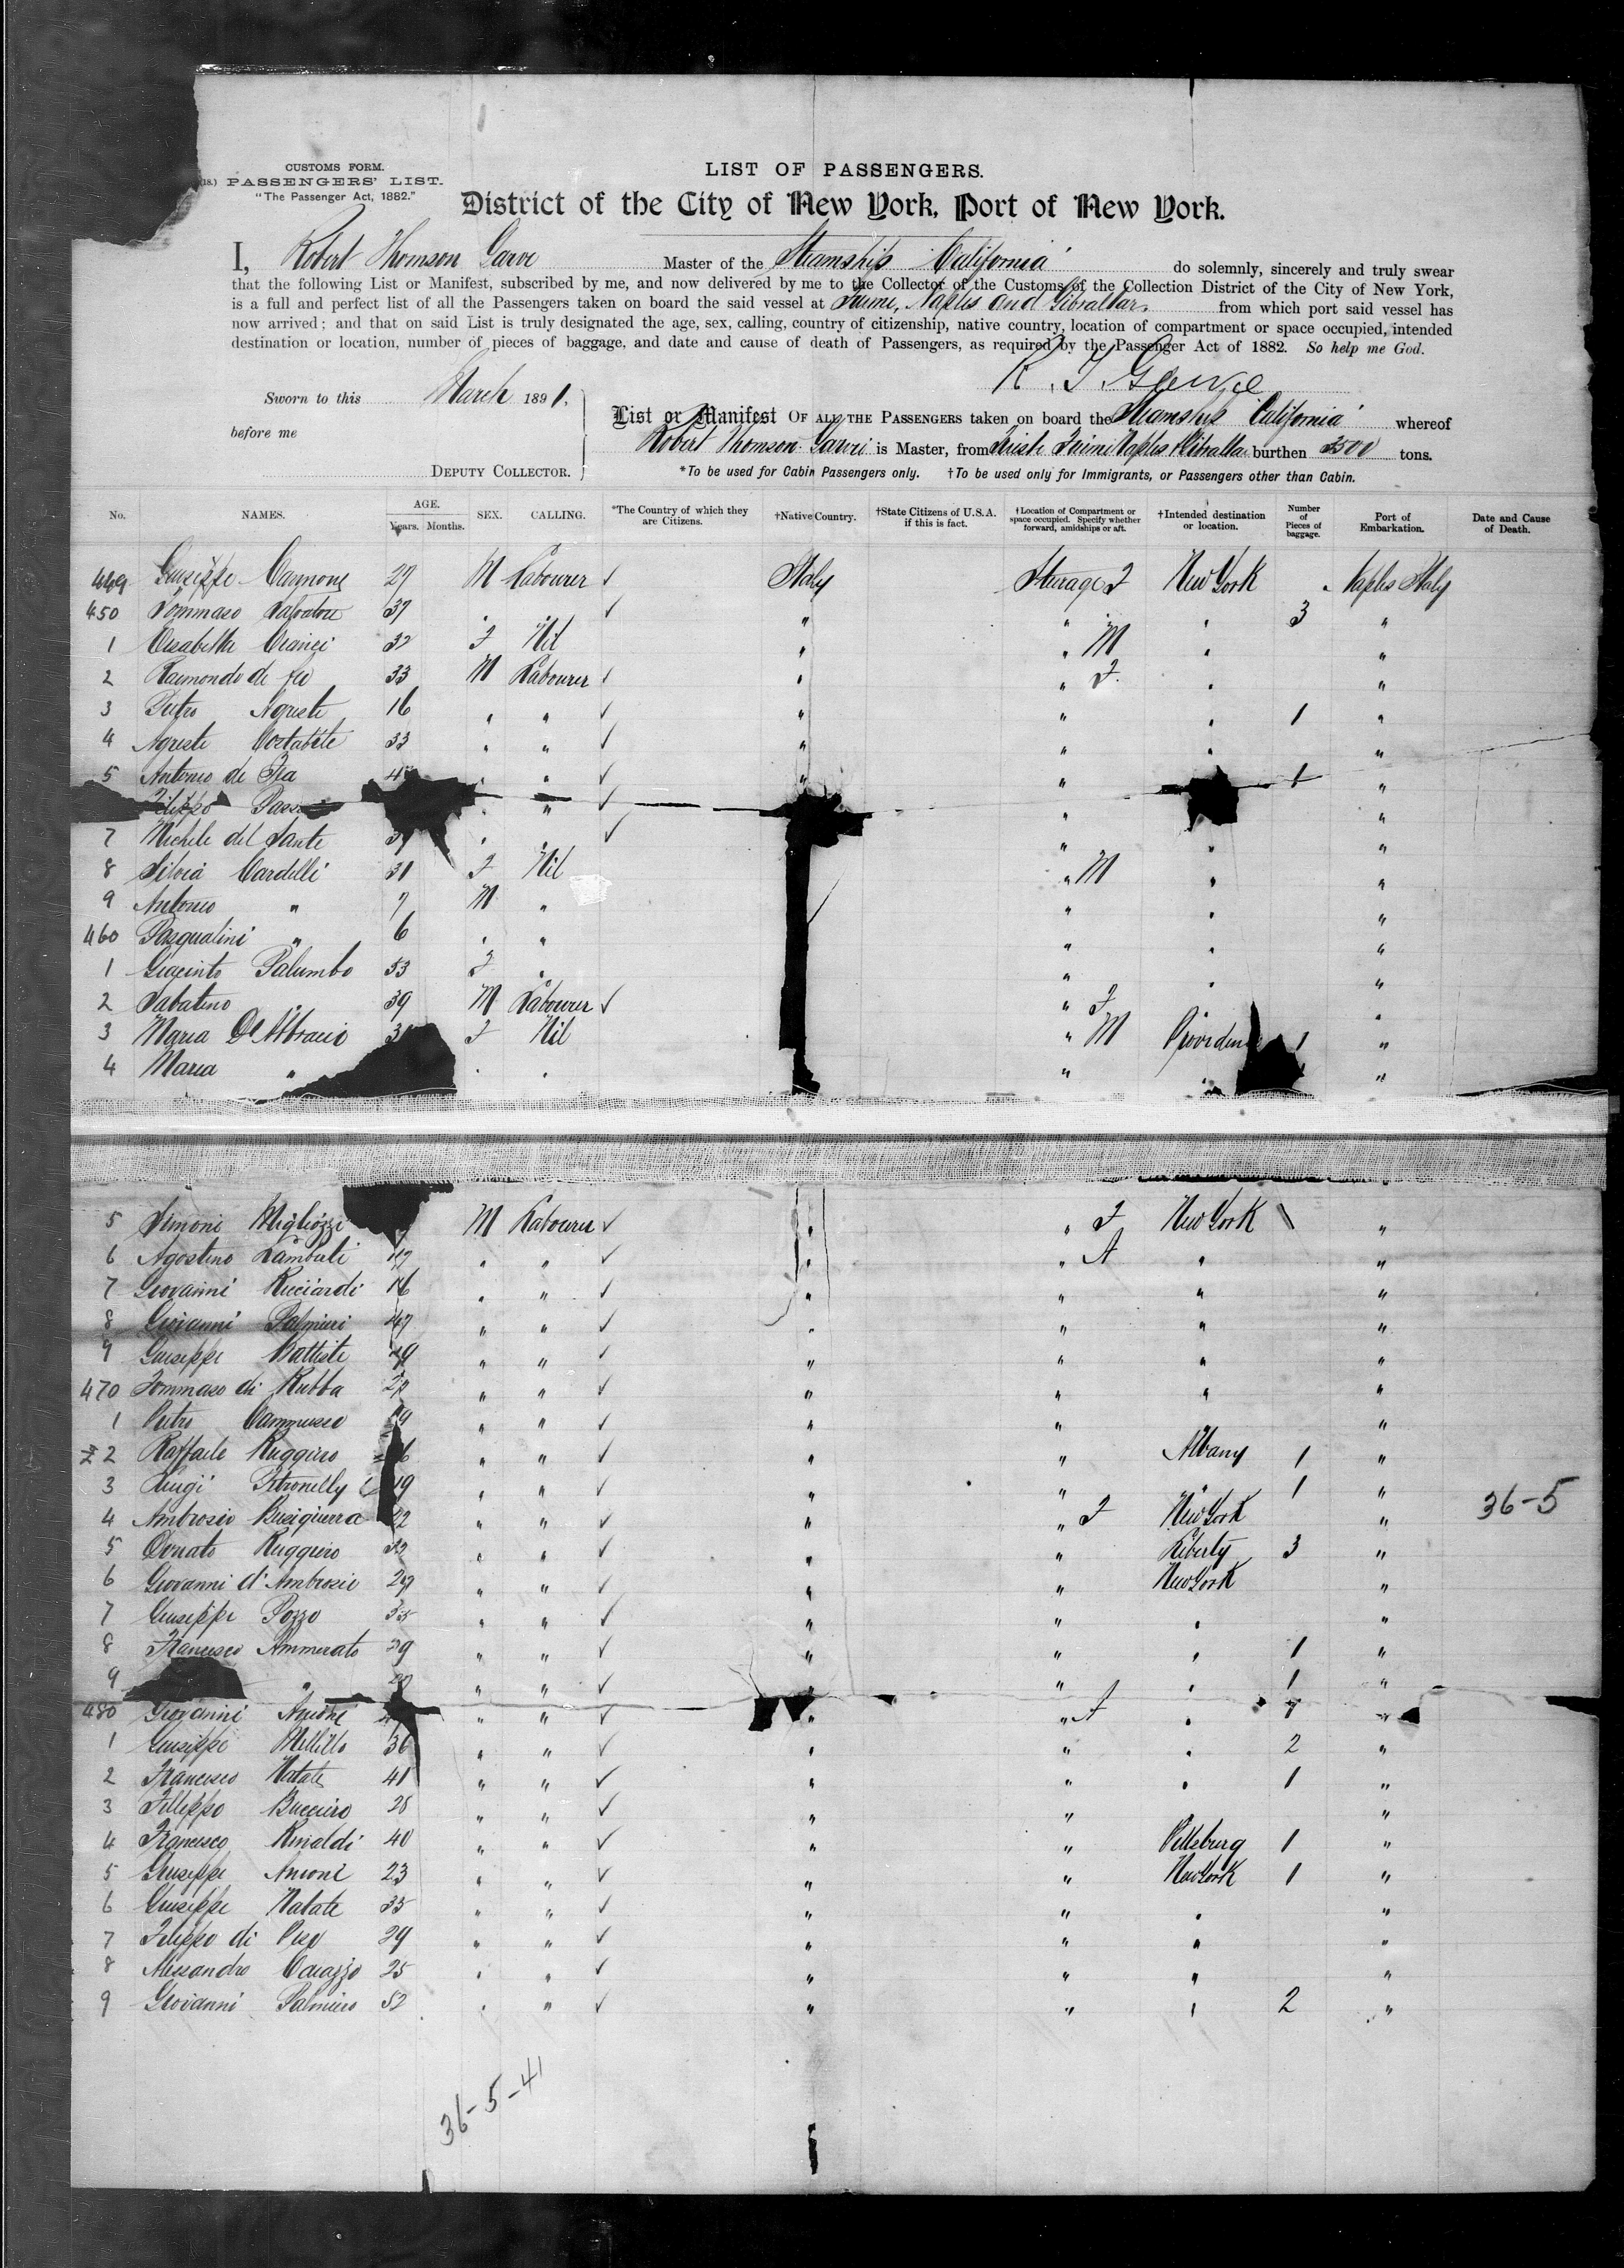 CUSTOMS FORM.
PASSENGERS' LIST.
"The Passenger Act, 1882."
LIST OF PASSENGERS.
District of the City of New York, Port of New York.
I, Robert Thomson Master of the Steamship "California" do solemnly, sincerely and truly swear
that the following List or Manifest, subscribed by me, and now delivered by me to the Collector of the Customs of the Collection District of the City of New York,
is a full and perfect list of all the Passengers taken on board the said vessel at Fiume, Naples and Gibraltar. from which port said vessel has
now arrived; and that on said List is truly designated the age, sex, calling, country of citizenship, native country, location of compartment or space occupied, intended
destination or location, number of pieces of baggage, and date and cause of death of Passengers, as required by the Passenger Act of 1882. So help me God.
R. T.
Sworn to this March 1891.
before me
DEPUTY COLLECTOR.
List or Manifest OF ALL THE PASSENGERS taken on board the Steamship "California" whereof
Robert Thomson is Master, from Fiume Naples Gibraltar burthen tons.
*To be used for Cabin Passengers only. †To be used only for Immigrants, or Passengers other than Cabin.
No. NAMES. AGE. Years. Months. SEX. CALLING. *The Country of which they are Citizens. †Native Country. †State Citizens of U.S.A. if this is fact. †Location of Compartment or space occupied. Specify whether forward, amidships or aft. †Intended destination or location. Number of Pieces of baggage. Port of Embarkation. Date and Cause of Death.
449 Giuseppe 29 M Labourer ✓ Italy Steerage F New York Naples Italy
450 Tommaso Salvatore 37 " ✓ " " " 3 "
1 32 F Nil " " M " "
2 Raimondo de 33 M Labourer ✓ " " F " "
3 Pietro Agreste 16 " " ✓ " " " 1 "
4 Agreste 33 " " ✓ " " " "
5 Antonio de " " ✓ " " 1 "
Filippo " " ✓ " "
7 Michele del Sante " " ✓ " " "
8 Silvia Cardelli 31 F Nil " M " "
9 Antonio " 7 M " " " "
460 Pasqualini " 6 " " " " "
1 Giacinto Palumbo 53 F " " " "
2 Sabatino " 39 M Labourer ✓ " F "
3 Maria F Nil " M Providence 1 "
4 Maria " " " " " "
5 Simoni Migliozzi M Labourer ✓ " " F New York \ "
6 Agostino " " ✓ " " A " "
7 Giovanni Ricciardi 16 " " ✓ " " " "
8 Giovanni Palmieri 47 " " ✓ " " " "
9 Giuseppe Battiste " " ✓ " " " "
470 Tommaso di Rubba " " ✓ " " " "
1 Pietro " " ✓ " " "
2 Raffaele Ruggiero " " ✓ " " Albany 1 "
3 Luigi 19 " " ✓ " " " 1 "
4 Ambrosio 22 " " ✓ " " F New York "
36-5
5 Donato Ruggiero " " ✓ " " Liberty 3 "
6 Giovanni d'Ambrosio 29 " " ✓ " " New York "
7 Giuseppe Pozzo " " ✓ " " " "
8 Francesco Ammirato 29 " " ✓ " " " 1 "
9 " " " ✓ " " " 1 "
480 Giovanni " " ✓ " " A " "
1 Giuseppe Melillo 36 " " ✓ " " " 2 "
2 Francesco Natale 41 " " ✓ " " " 1 "
3 Fillippo Bucciero 28 " " ✓ " " "
4 Francesco Rinaldi 40 " " ✓ " " Pittsburg 1 "
5 Giuseppe 23 " " ✓ " " New York 1 "
6 Giuseppe Natale 35 " " ✓ " " " "
7 Filippo di 29 " " ✓ " " " "
8 Alessandro 25 " " ✓ " " " "
9 Giovanni Palmiero 52 " " ✓ " " " 2 "
36-5-41